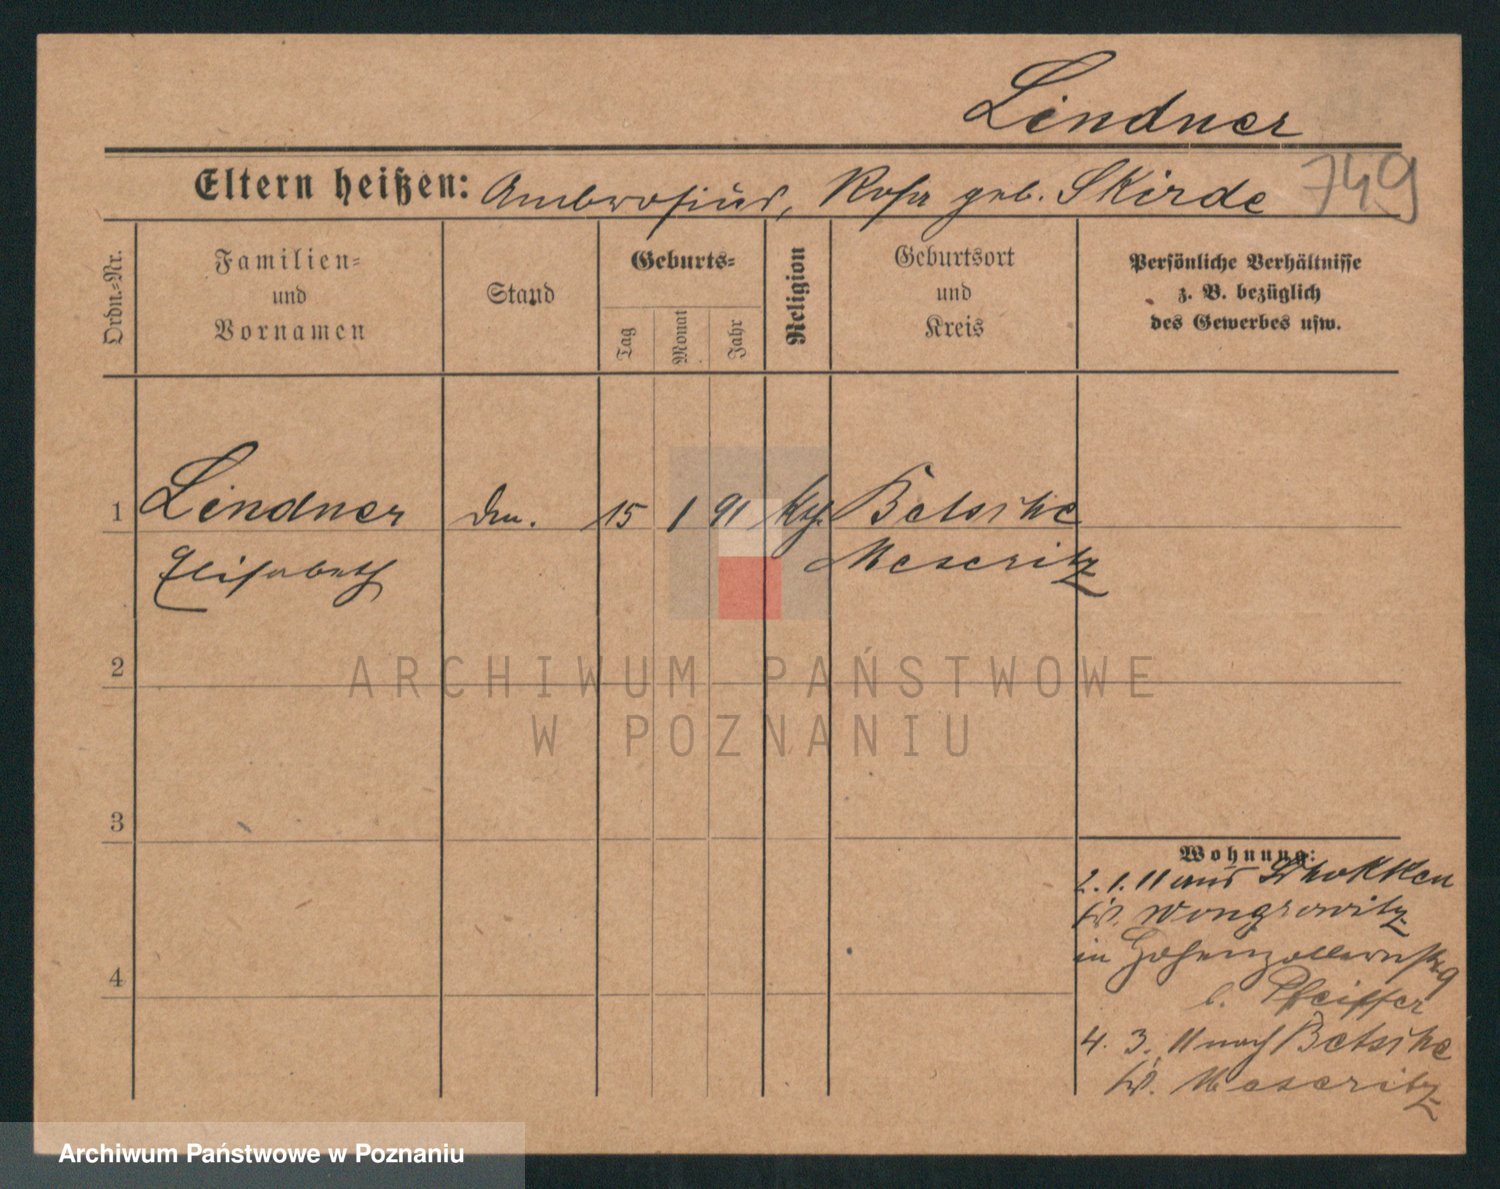 Lindner
Eltern heißen: Ambrosius, Rosa geb. Skirde 749
Ordn.-Nr.
Familien-
und
Vornamen
Stand
Geburts-
Tag
Monat
Jahr
Religion
Geburtsort
und
Kreis
Persönliche Verhältnisse
z. B. bezüglich
des Gewerbes usw.
1 Lindner 15 1 91 Betsche
Elisabeth Meseritz
2
3
4
Wohnung:
2. 1. 11 aus Schokken
Kr. Wongrowitz
in Hohenzollernstr 9
b. Pfeiffer
4. 3. 11 nach Betsche
Kr. Meseritz
ARCHIWUM PAŃSTWOWE
W POZNANIU
Archiwum Państwowe w Poznaniu